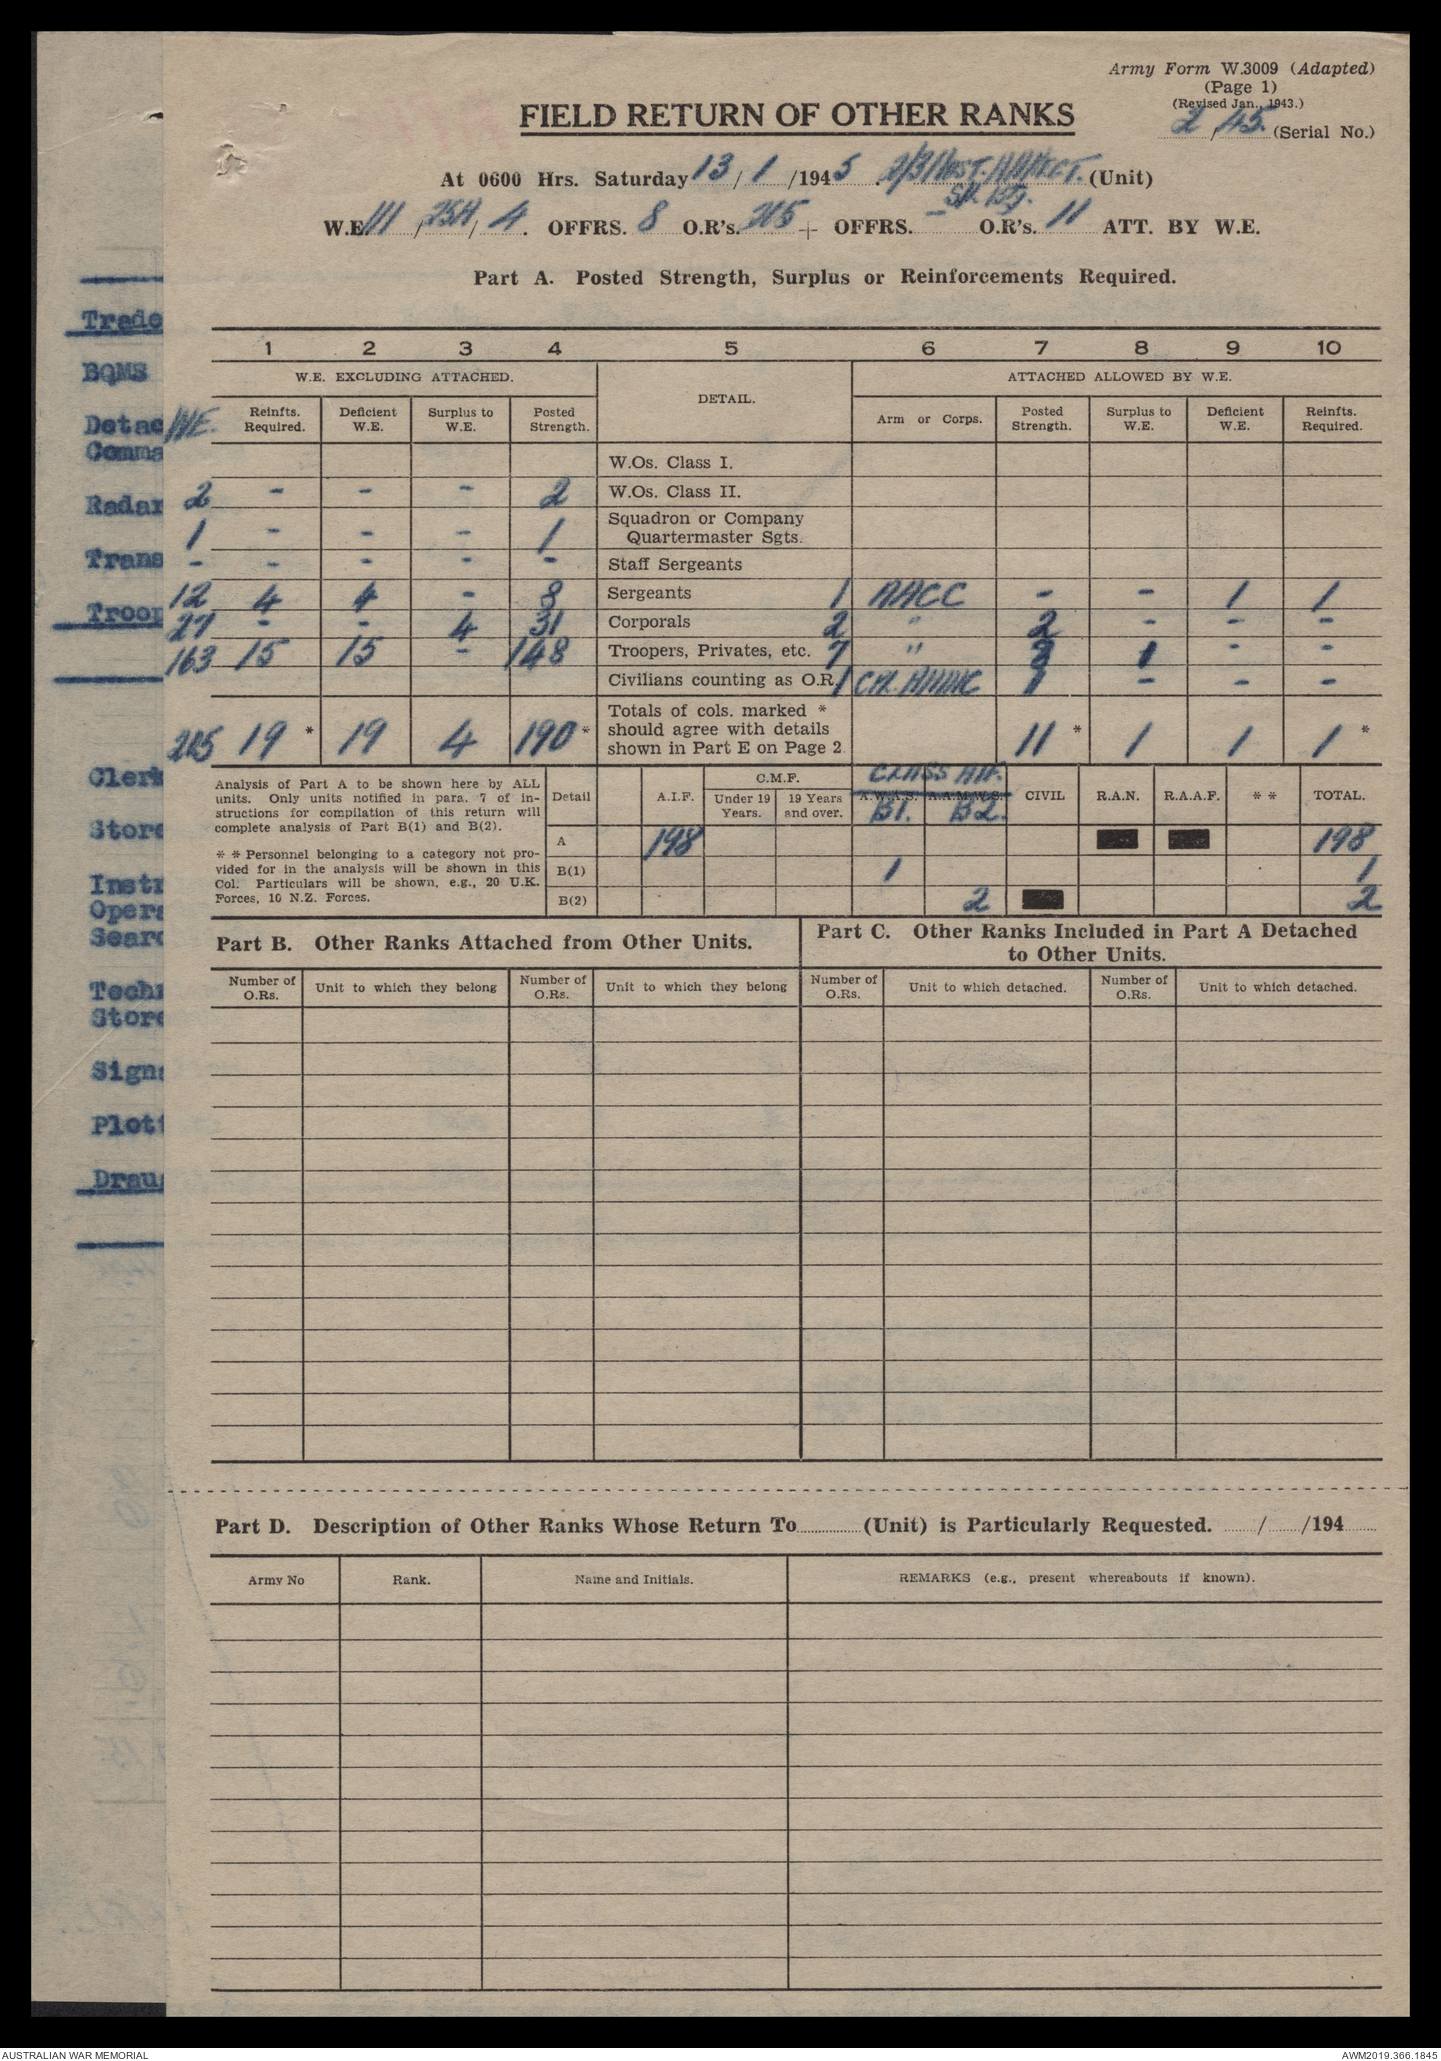 Army Form W.3009 (Adapted)
(Page 1)
(Revised Jan., 1943.)
2/45. (Serial No.)
FIELD RETURN OF OTHER RANKS
At 0600 Hrs. Saturday 13/1/1945. (Unit)
W.E. 111/25H/4. OFFRS. 8 O.R's. 205 + OFFRS. - O.R's. 11 ATT. BY W.E.
Part A. Posted Strength, Surplus or Reinforcements Required.
1 2 3 4 5 6 7 8 9 10
W.E. EXCLUDING ATTACHED. DETAIL. ATTACHED ALLOWED BY W.E.
WE. Reinfts. Required. Deficient W.E. Surplus to W.E. Posted Strength. Arm or Corps. Posted Strength. Surplus to W.E. Deficient W.E. Reinfts. Required.
W.Os. Class I.
2 - - - 2 W.Os. Class II.
1 - - - 1 Squadron or Company Quartermaster Sgts.
- - - - - Staff Sergeants
12 4 4 - 8 Sergeants 1 AACC - - 1 1
27 - - 4 31 Corporals 2 " 2 - - -
163 15 15 - 148 Troopers, Privates, etc. 7 " 8 1 - -
Civilians counting as O.R. 1 1 - - -
205 19 * 19 4 190 * Totals of cols. marked * should agree with details shown in Part E on Page 2 11 * 1 1 1 *
Analysis of Part A to be shown here by ALL
units. Only units notified in para. 7 of in-
structions for compilation of this return will
complete analysis of Part B(1) and B(2).
* * Personnel belonging to a category not pro-
vided for in the analysis will be shown in this
Col. Particulars will be shown, e.g., 20 U.K.
Forces, 10 N.Z. Forces.
C.M.F. CLASS AIF.
Detail A.I.F. Under 19 Years. 19 Years and over. A.W.A.S. A.A.M.W.S. CIVIL R.A.N. R.A.A.F. * * TOTAL.
B1. B2.
A 198 198
B(1) 1 1
B(2) 2 2
Part B. Other Ranks Attached from Other Units.
Part C. Other Ranks Included in Part A Detached
to Other Units.
Number of O.Rs. Unit to which they belong Number of O.Rs. Unit to which they belong Number of O.Rs. Unit to which detached. Number of O.Rs. Unit to which detached.
Part D. Description of Other Ranks Whose Return To............(Unit) is Particularly Requested. ....../....../194......
Army No Rank. Name and Initials. REMARKS (e.g., present whereabouts if known).
Trade
BQMS
Detac
Comma
Radar
Trans
Troop
Clerk
Store
Instr
Opera
Searc
Techn
Store
Signa
Plott
Draug
AUSTRALIAN WAR MEMORIAL
AWM2019.366.1845